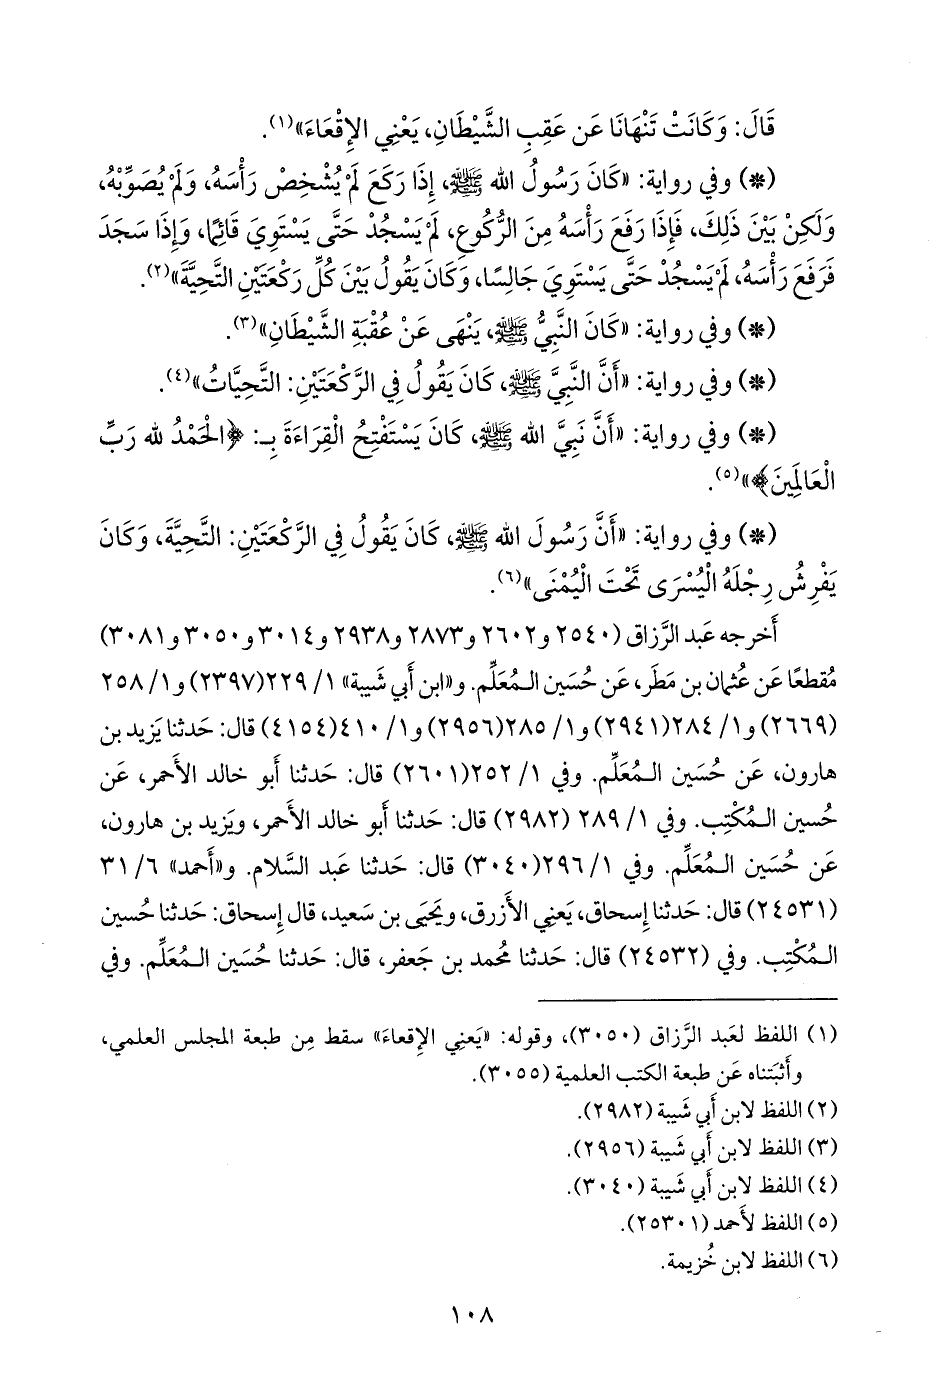 قَالَ: وَكَانَتْ تَنْهَانَا عَن عَقِبِ الشَّيْطَانِ، يَعْنِي الإِقْعَاءَ»(١).
(*) وفي رواية: «كَانَ رَسُولُ الله ﷺ، إِذَا رَكَعَ لَمْ يُشْخِصْ رَأْسَهُ، وَلَمْ يُصَوِّبْهُ،
وَلَكِنْ بَيْنَ ذَلِكَ، فَإِذَا رَفَعَ رَأْسَهُ مِنَ الرُّكُوعِ، لَمْ يَسْجُدْ حَتَّى يَسْتَوِيَ قَائِمًا، وَإِذَا سَجَدَ
فَرَفَعَ رَأْسَهُ، لَمْ يَسْجُدْ حَتَّى يَسْتَوِيَ جَالِسًا، وَكَانَ يَقُولُ بَيْنَ كُلِّ رَكْعَتَيْنِ التَّحِيَّةَ»(٢).
(*) وفي رواية: «كَانَ النَّبِيُّ ﷺ، يَنْهَى عَنْ عُقْبَةِ الشَّيْطَانِ»(٣).
(*) وفي رواية: «أَنَّ النَّبِيَّ ﷺ، كَانَ يَقُولُ فِي الرَّكْعَتَيْنِ: التَّحِيَّاتُ»(٤).
(*) وفي رواية: «أَنَّ نَبِيَّ الله ﷺ، كَانَ يَسْتَفْتِحُ الْقِرَاءَةَ بِـ: ﴿الْحَمْدُ لله رَبِّ
الْعَالَمِينَ﴾»(٥).
(*) وفي رواية: «أَنَّ رَسُولَ الله ﷺ، كَانَ يَقُولُ فِي الرَّكْعَتَيْنِ: التَّحِيَّةَ، وَكَانَ
يَفْرِشُ رِجْلَهُ الْيُسْرَى تَحْتَ الْيُمْنَى»(٦).
أَخرجه عَبد الرَّزاق (٢٥٤٠ و٢٦٠٢ و٢٨٧٣ و٢٩٣٨ و٣٠١٤ و٣٠٥٠ و٣٠٨١)
مُقطعًا عَن عُثمان بن مَطَر، عَن حُسَين المُعَلِّم. و«ابن أَبي شَيبة» ١/ ٢٢٩(٢٣٩٧) و١/ ٢٥٨
(٢٦٦٩) و١/ ٢٨٤(٢٩٤١) و١/ ٢٨٥(٢٩٥٦) و١/ ٤١٠(٤١٥٤) قال: حَدثنا يَزيد بن
هارون، عَن حُسَين المُعَلِّم. وفي ١/ ٢٥٢(٢٦٠١) قال: حَدثنا أَبو خالد الأَحمر، عَن
حُسين المُكْتِب. وفي ١/ ٢٨٩ (٢٩٨٢) قال: حَدثنا أَبو خالد الأَحمر، ويَزيد بن هارون،
عَن حُسَين المُعَلِّم. وفي ١/ ٢٩٦(٣٠٤٠) قال: حَدثنا عَبد السَّلام. و«أَحمد» ٦/ ٣١
(٢٤٥٣١) قال: حَدثنا إِسحاق، يَعني الأَزرق، ويَحيَى بن سَعيد، قال إِسحاق: حَدثنا حُسين
المُكْتِب. وفي (٢٤٥٣٢) قال: حَدثنا مُحمد بن جَعفر، قال: حَدثنا حُسَين المُعَلِّم. وفي
(١) اللفظ لعَبد الرَّزاق (٣٠٥٠)، وقوله: «يَعني الإِقعاء» سقط مِن طبعة المجلس العلمي،
وأَثبَتناه عَن طبعة الكتب العلمية (٣٠٥٥).
(٢) اللفظ لابن أَبي شَيبة (٢٩٨٢).
(٣) اللفظ لابن أَبي شَيبة (٢٩٥٦).
(٤) اللفظ لابن أَبي شَيبة (٣٠٤٠).
(٥) اللفظ لأَحمد (٢٥٣٠١).
(٦) اللفظ لابن خُزيمة.
١٠٨